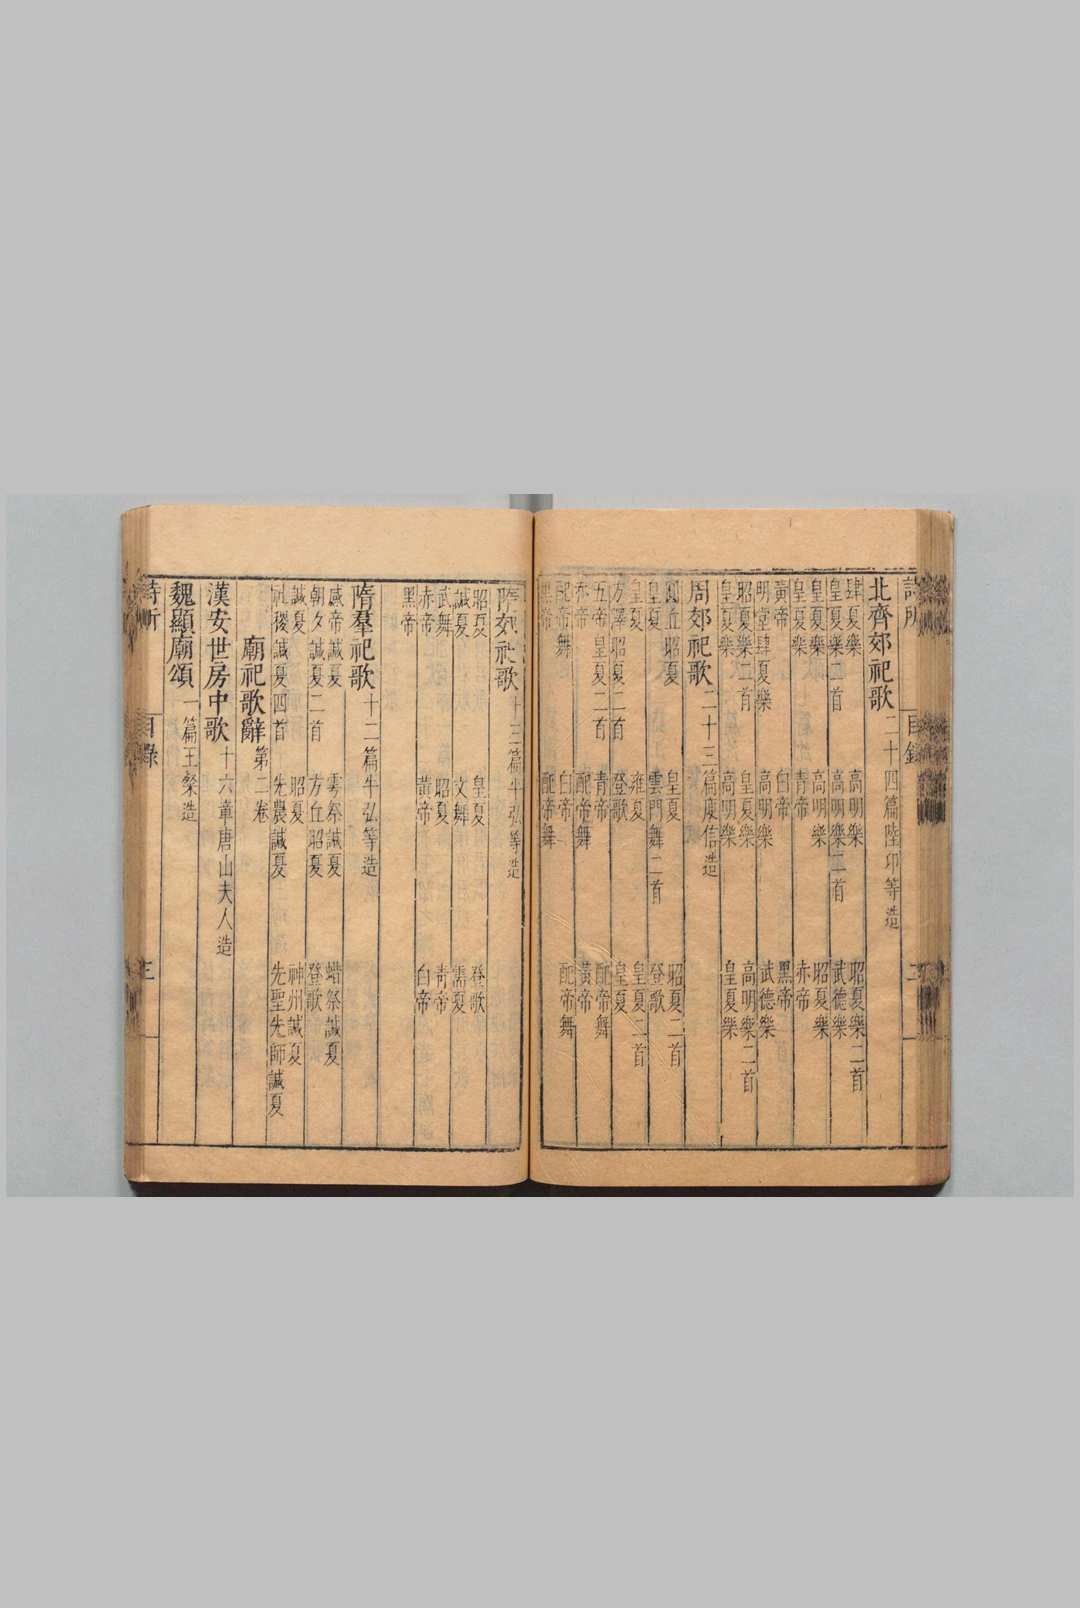 詩所 目錄 二
北齊郊祀歌 二十四篇陸卬等造
肆夏樂 高明樂 昭夏樂二首
皇夏樂二首 高明樂二首 武德樂
皇夏樂 高明樂 昭夏樂
皇夏樂 青帝 赤帝
黃帝 白帝 黑帝
明堂肆夏樂 高明樂 武德樂
昭夏樂二首 皇夏樂 高明樂二首
皇夏樂 高明樂 皇夏樂
周郊祀歌 二十三篇庾信造
圓丘昭夏 皇夏 昭夏二首
皇夏 雲門舞二首 登歌
皇夏 雍夏 皇夏二首
方澤昭夏二首 登歌 皇夏
五帝皇夏二首 青帝 配帝舞
赤帝 配帝舞 黃帝
配帝舞 白帝 配帝舞
黑帝 配帝舞
隋郊祀歌 十三篇牛弘等造
昭夏 皇夏 登歌
諴夏 文舞 需夏
武舞 昭夏 青帝
赤帝 黃帝 白帝
黑帝
隋羣祀歌 十二篇牛弘等造
感帝諴夏 雩祭諴夏 蜡祭諴夏
朝夕諴夏二首 方丘昭夏 登歌
諴夏 昭夏 神州諴夏
社稷諴夏四首 先農諴夏 先聖先師諴夏
廟祀歌辭 第二卷
漢安世房中歌 十六章唐山夫人造
魏顯廟頌 一篇王粲造
詩所 目錄 三